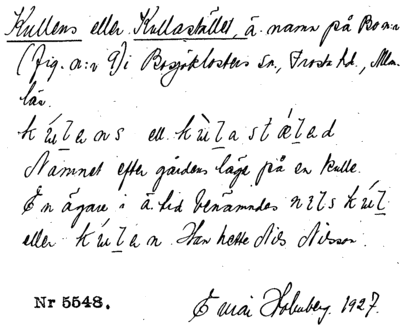 Kullens eller Kullastället, ä. namn på Bo n:r
(fig. a:r 9) i Bosjöklosters sn., Frosta hd., Mlm.
län.
kúlans ell. kùlastǽlǝd
Namnet efter gårdens läge på en kulle.
En ägare i ä. tid benämndes nils kúl
eller kúlan. Han hette Nils Nilsson.
Nr 5548.
Holmberg. 1927.